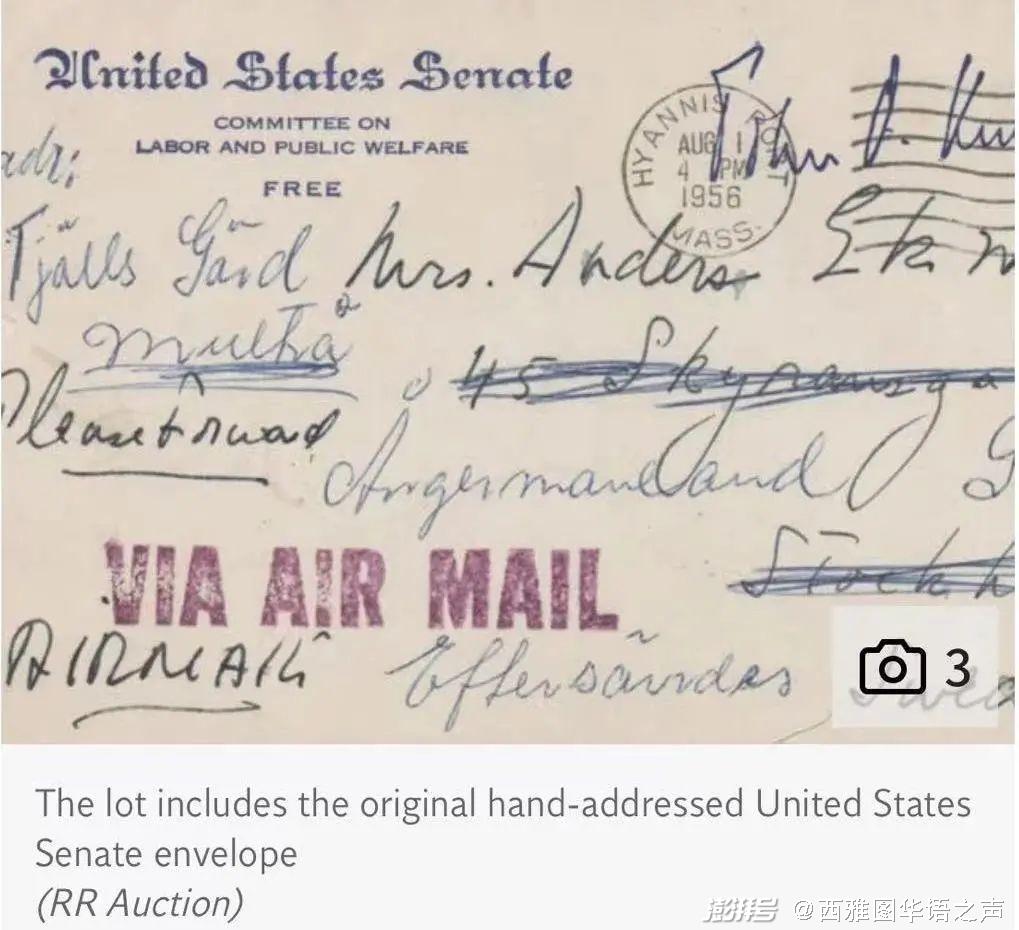 United States Senate
COMMITTEE ON
LABOR AND PUBLIC WELFARE
FREE
HYANNIS PORT
AUG 1
4 PM
1956
MASS.
adr:
Tjälls Gård Mrs. Anders
Multrå
45
Please forward
Ångermanland
VIA AIR MAIL
AIRMAIL Eftersändes
3
The lot includes the original hand-addressed United States
Senate envelope
(RR Auction)
澎湃号 @西雅图华语之声